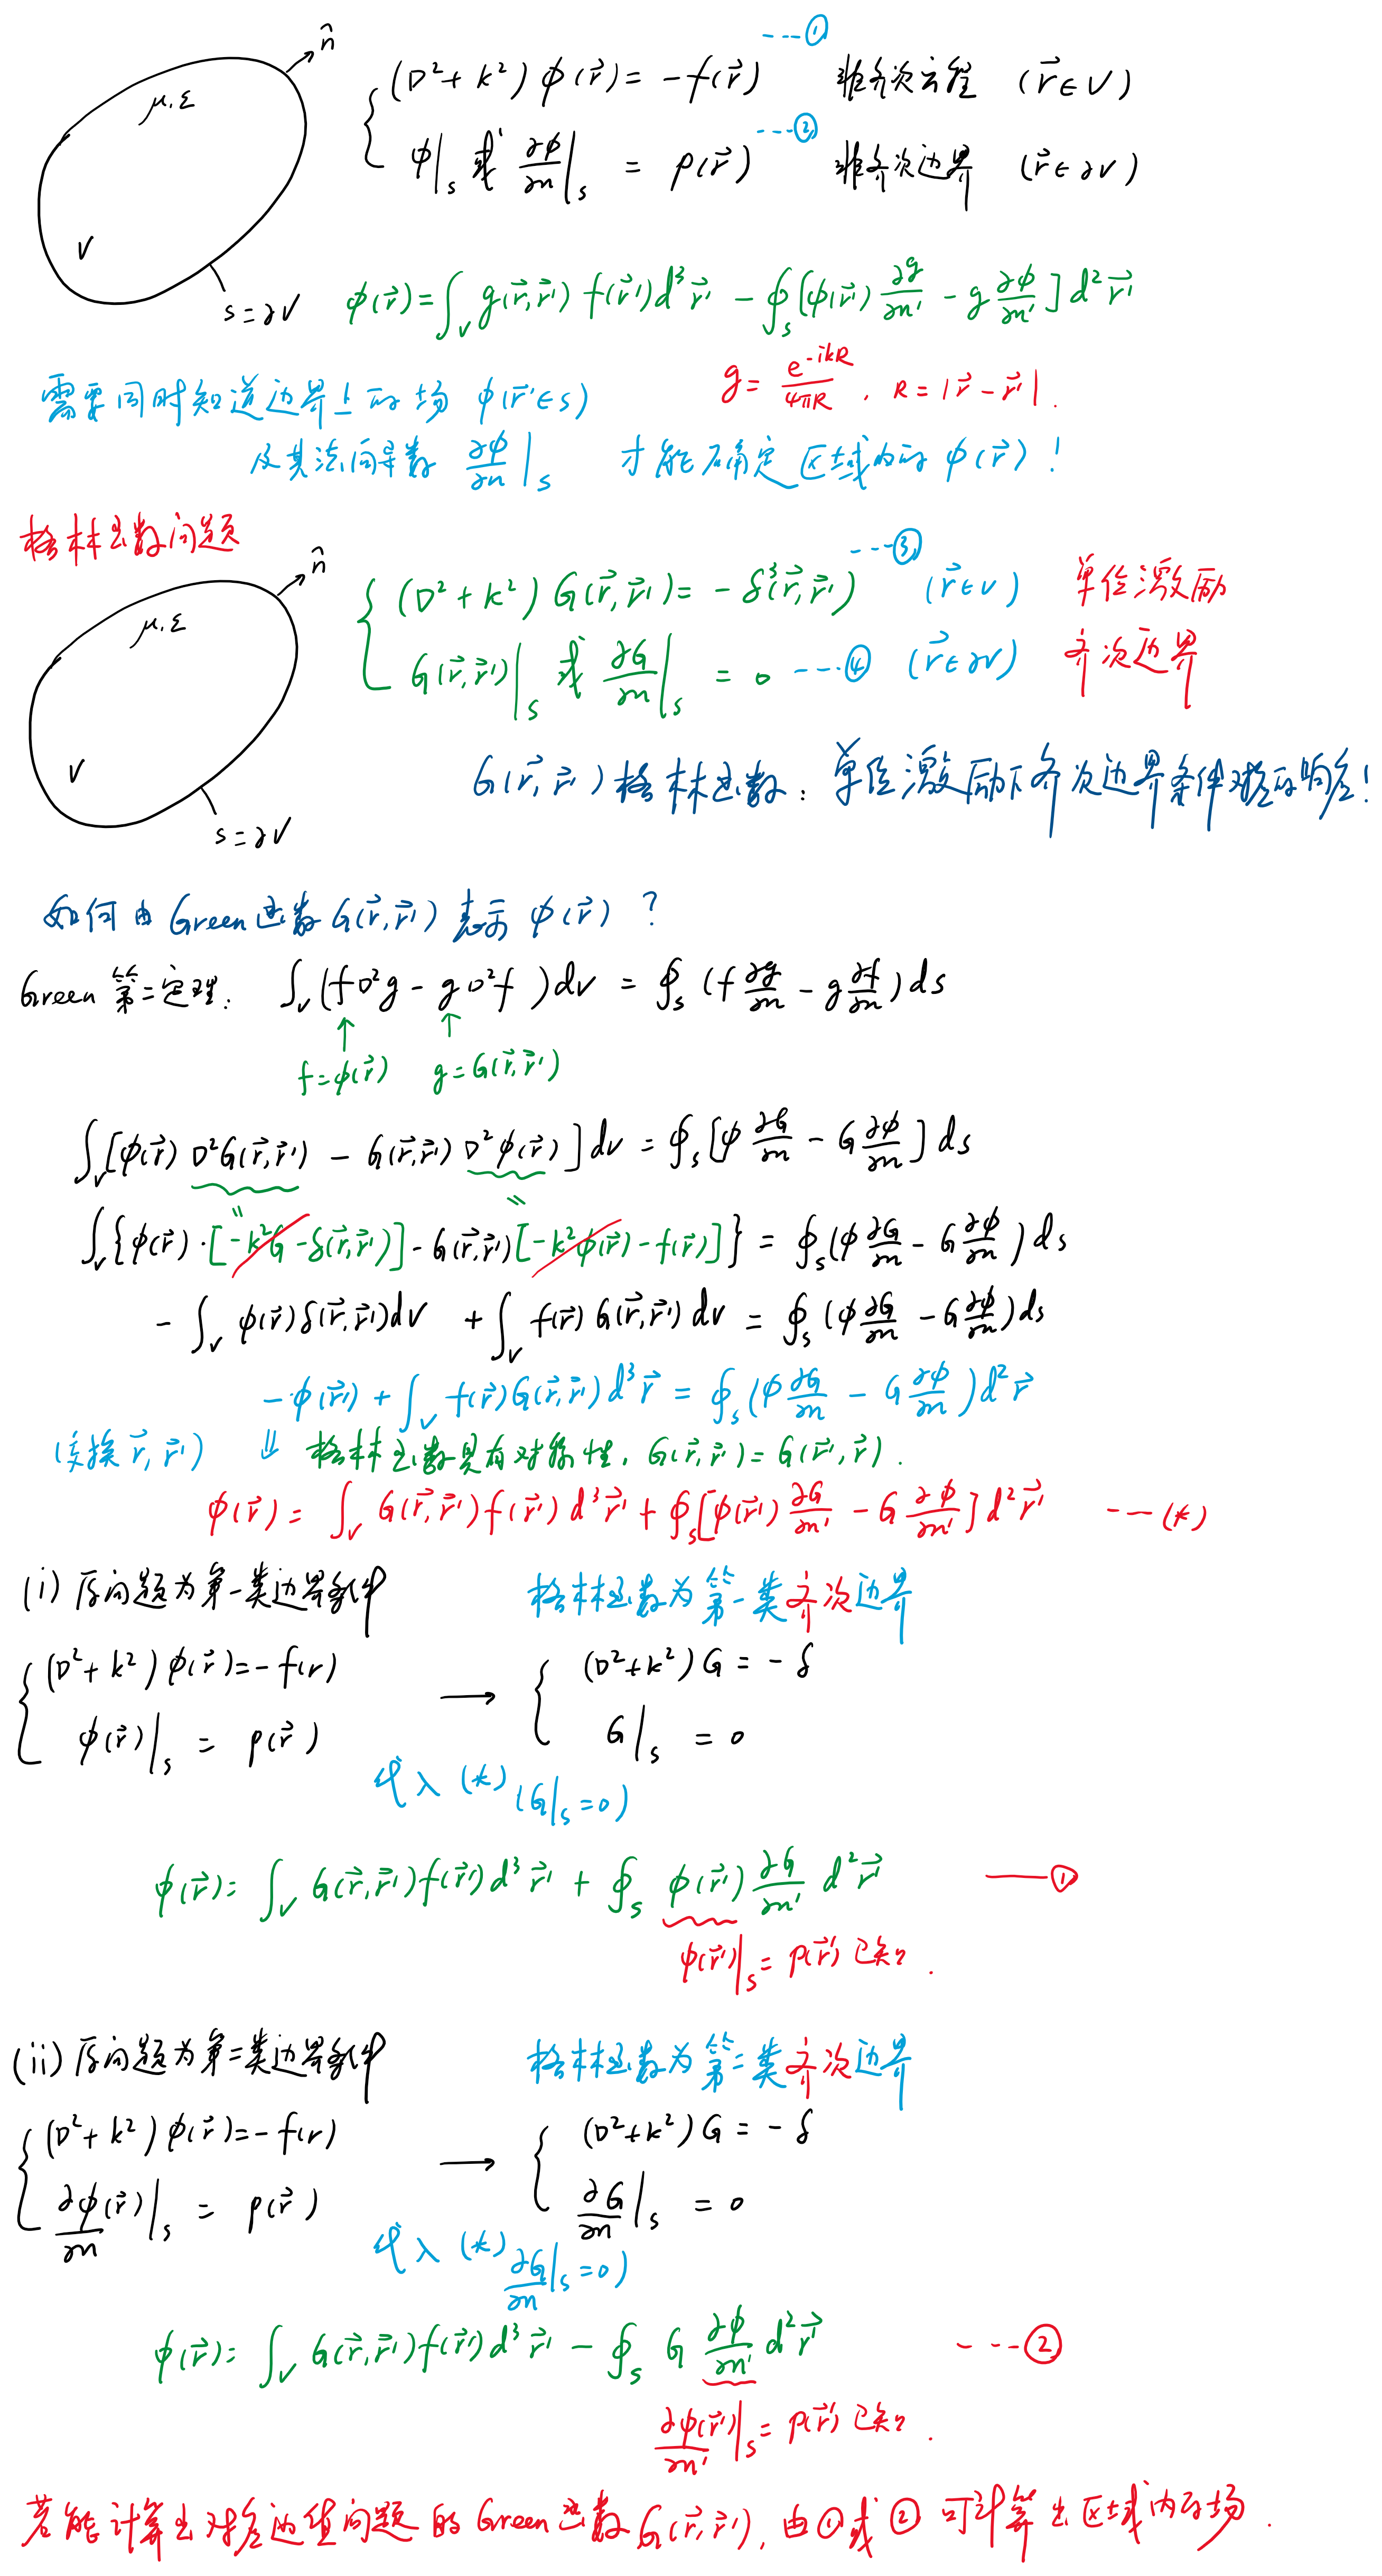 n̂
μ.ε
V
S=∂V
{ (∇²+k²) φ(r⃗) = -f(r⃗) ---① 非齐次方程 (r⃗∈V)
φ|s 或 ∂φ/∂n|s = p(r⃗) ---② 非齐次边界 (r⃗∈∂V)
φ(r⃗)=∫v g(r⃗,r⃗') f(r⃗')d³r⃗' - ∮s[φ(r⃗') ∂g/∂n' - g ∂φ/∂n'] d²r⃗'
g= e^(-ikR)/4πR , R=|r⃗-r⃗'|.
需要同时知道边界上的场 φ(r⃗'∈s)
及其法向导数 ∂φ/∂n|s 才能确定区域内的 φ(r⃗)!
格林函数问题
n̂
μ.ε
V
S=∂V
{ (∇²+k²) G(r⃗,r⃗')= -δ³(r⃗,r⃗') ---③ (r⃗∈V) 单位激励
G(r⃗,r⃗')|s 或 ∂G/∂n|s = 0 ---④ (r⃗∈∂V) 齐次边界
G(r⃗,r⃗')格林函数: 单位激励下齐次边界条件对应的响应!
如何由Green函数G(r⃗,r⃗')表示 φ(r⃗) ?
Green 第二定理: ∫v (f∇²g - g∇²f)dv = ∮s (f ∂g/∂n - g ∂f/∂n) ds
↑ ↑
f=φ(r⃗) g=G(r⃗,r⃗')
∫v[φ(r⃗) ∇²G(r⃗,r⃗') - G(r⃗,r⃗') ∇²φ(r⃗)] dv = ∮s[φ ∂G/∂n - G ∂φ/∂n] ds
∫v{φ(r⃗)·[-k²G-δ(r⃗,r⃗')]-G(r⃗,r⃗')[-k²φ(r⃗)-f(r⃗)]} = ∮s(φ ∂G/∂n - G ∂φ/∂n) ds
-∫v φ(r⃗)δ(r⃗,r⃗')dv + ∫v f(r⃗) G(r⃗,r⃗') dv = ∮s (φ ∂G/∂n - G ∂φ/∂n)ds
-φ(r⃗') + ∫v f(r⃗)G(r⃗,r⃗') d³r⃗ = ∮s(φ ∂G/∂n - G ∂φ/∂n)d²r⃗
(交换 r⃗,r⃗') ⇓ 格林函数具有对称性, G(r⃗,r⃗')=G(r⃗',r⃗).
φ(r⃗) = ∫v G(r⃗,r⃗')f(r⃗') d³r⃗' + ∮s[φ(r⃗') ∂G/∂n' - G ∂φ/∂n'] d²r⃗' ---(*)
(i) 原问题为第一类边界条件 格林函数为第一类齐次边界
{ (∇²+k²)φ(r⃗)=-f(r) → { (∇²+k²)G = -δ
φ(r⃗)|s = p(r⃗) G|s = 0
代入 (*) (G|s=0)
φ(r⃗)= ∫v G(r⃗,r⃗')f(r⃗')d³r⃗' + ∮s φ(r⃗') ∂G/∂n' d²r⃗' ——①
φ(r⃗')|s = p(r⃗') 已知.
(ii) 原问题为第二类边界条件 格林函数为第二类齐次边界
{ (∇²+k²)φ(r⃗)=-f(r) → { (∇²+k²)G = -δ
∂φ(r⃗)/∂n|s = p(r⃗) ∂G/∂n|s = 0
代入 (*) ∂G/∂n|s=0)
φ(r⃗)= ∫v G(r⃗,r⃗')f(r⃗')d³r⃗' - ∮s G ∂φ/∂n' d²r⃗' ---②
∂φ(r⃗')/∂n'|s = p(r⃗') 已知.
若能计算出对应边值问题的Green函数G(r⃗,r⃗'), 由①或②可计算出区域内的场.